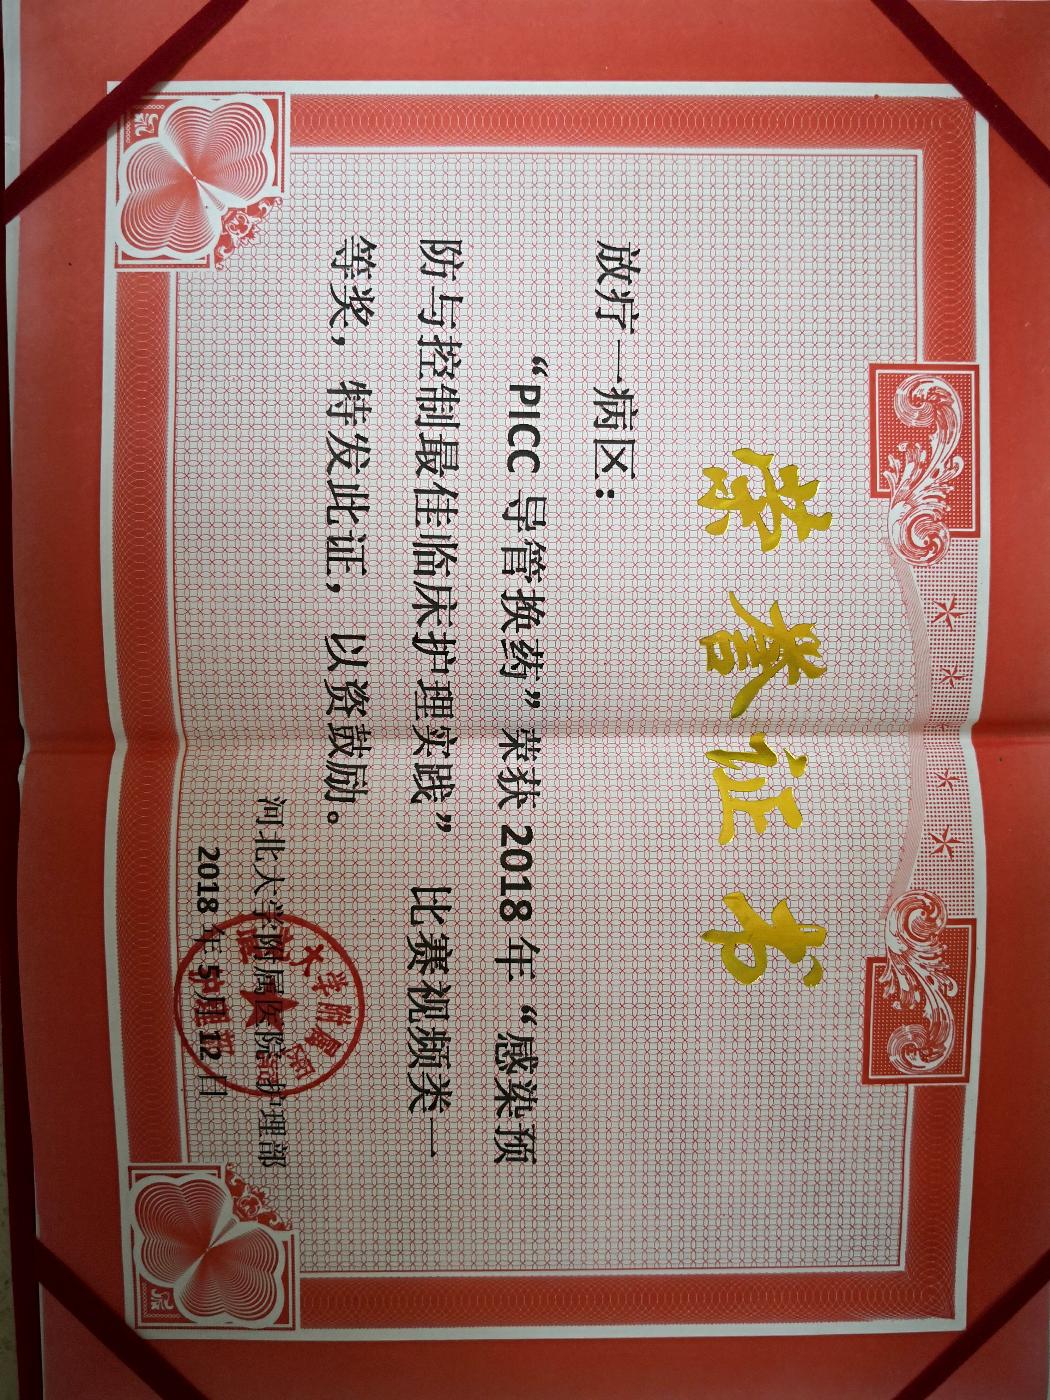 荣誉证书
放疗一病区：
“PICC 导管换药”荣获 2018 年“感染预
防与控制最佳临床护理实践”比赛视频类一
等奖，特发此证，以资鼓励。
河北大学附属医院护理部
2018 年 5 月 12 日
大学附属医